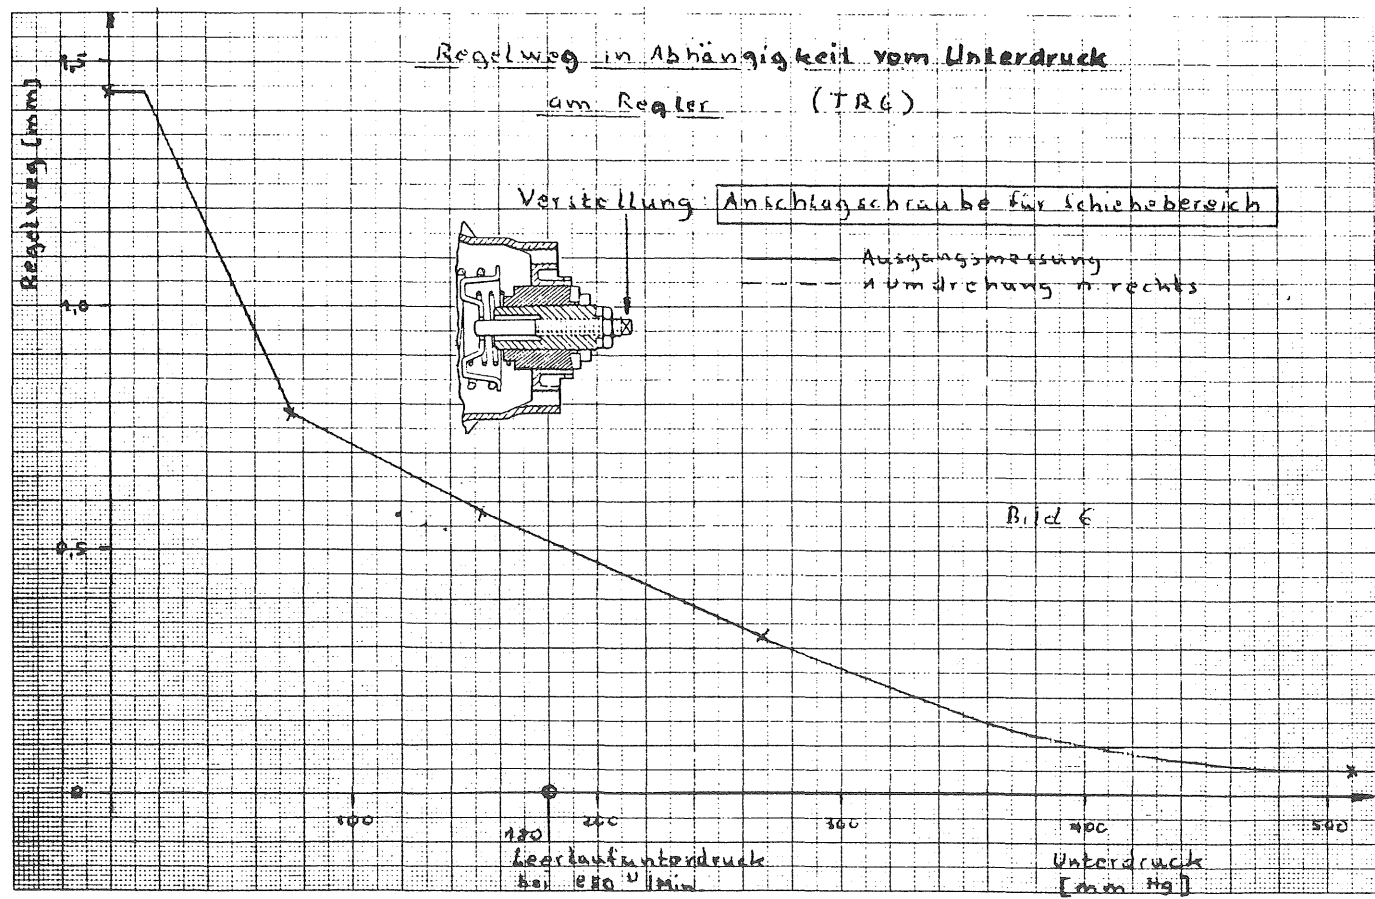 Regelweg in Abhängigkeit vom Unterdruck
am Regler (TRG)
Regelweg [mm]
Verstellung: Anschlagschraube für Schiebebereich
Ausgangsmessung
1 Umdrehung n. rechts
1,0
0,5
0
Bild 6
100
180
200
300
400
500
Leerlaufunterdruck
bei U/Min
Unterdruck
[mm Hg]